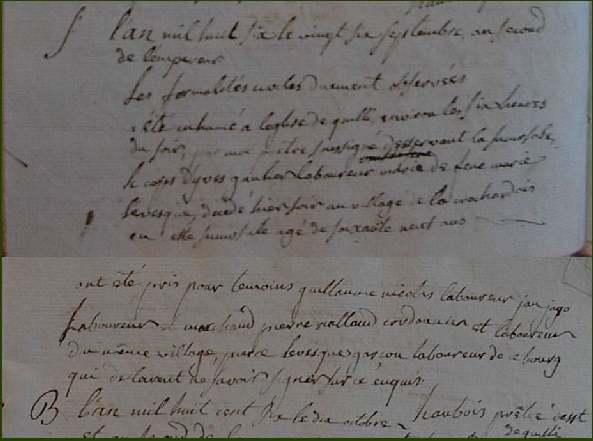 L'an mil huit six le vingt six septembre, an second
de l'empereur
Les formalités civiles duement observées
a été inhumé a leglise de quillé, environ les six heures
du soir, par moi prêtre soussigné desservant la succursale,
le corps d'yves gautier laboureur marié de fene marie
levesque, décédé hier soir au village de la
en cette succursale agé de soixante neuf ans
ont été pris pour temoins guillaume nicolas laboureur jan jago
Laboureur et marchand pierre rolland cordonnier et laboureur
du même village, pierre levesque garçon laboureur de ce bourg
qui declarent ne savoir signer sur ce enquis
L'an mil huit cent six le dix octobre - haubois prêtre desst
de quillé